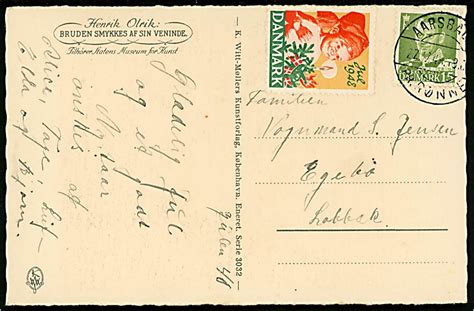 Henrik Olrik:
BRUDEN SMYKKES AF SIN VENINDE.
Tilhører Statens Museum for Kunst
Glædelig Jul
og et godt
Nytaar
ønskes af
Alice, Tage, Leif
Ella og Bjørn.
Julen 48
K. Witt-Møllers Kunstforlag, København. Eneret. Serie 3032
Jul
1948
DANMARK
DANMARK 15
AARSBALLE
RØNNE
Familien
Vognmand S. Jensen
Egebo
Lobbæk